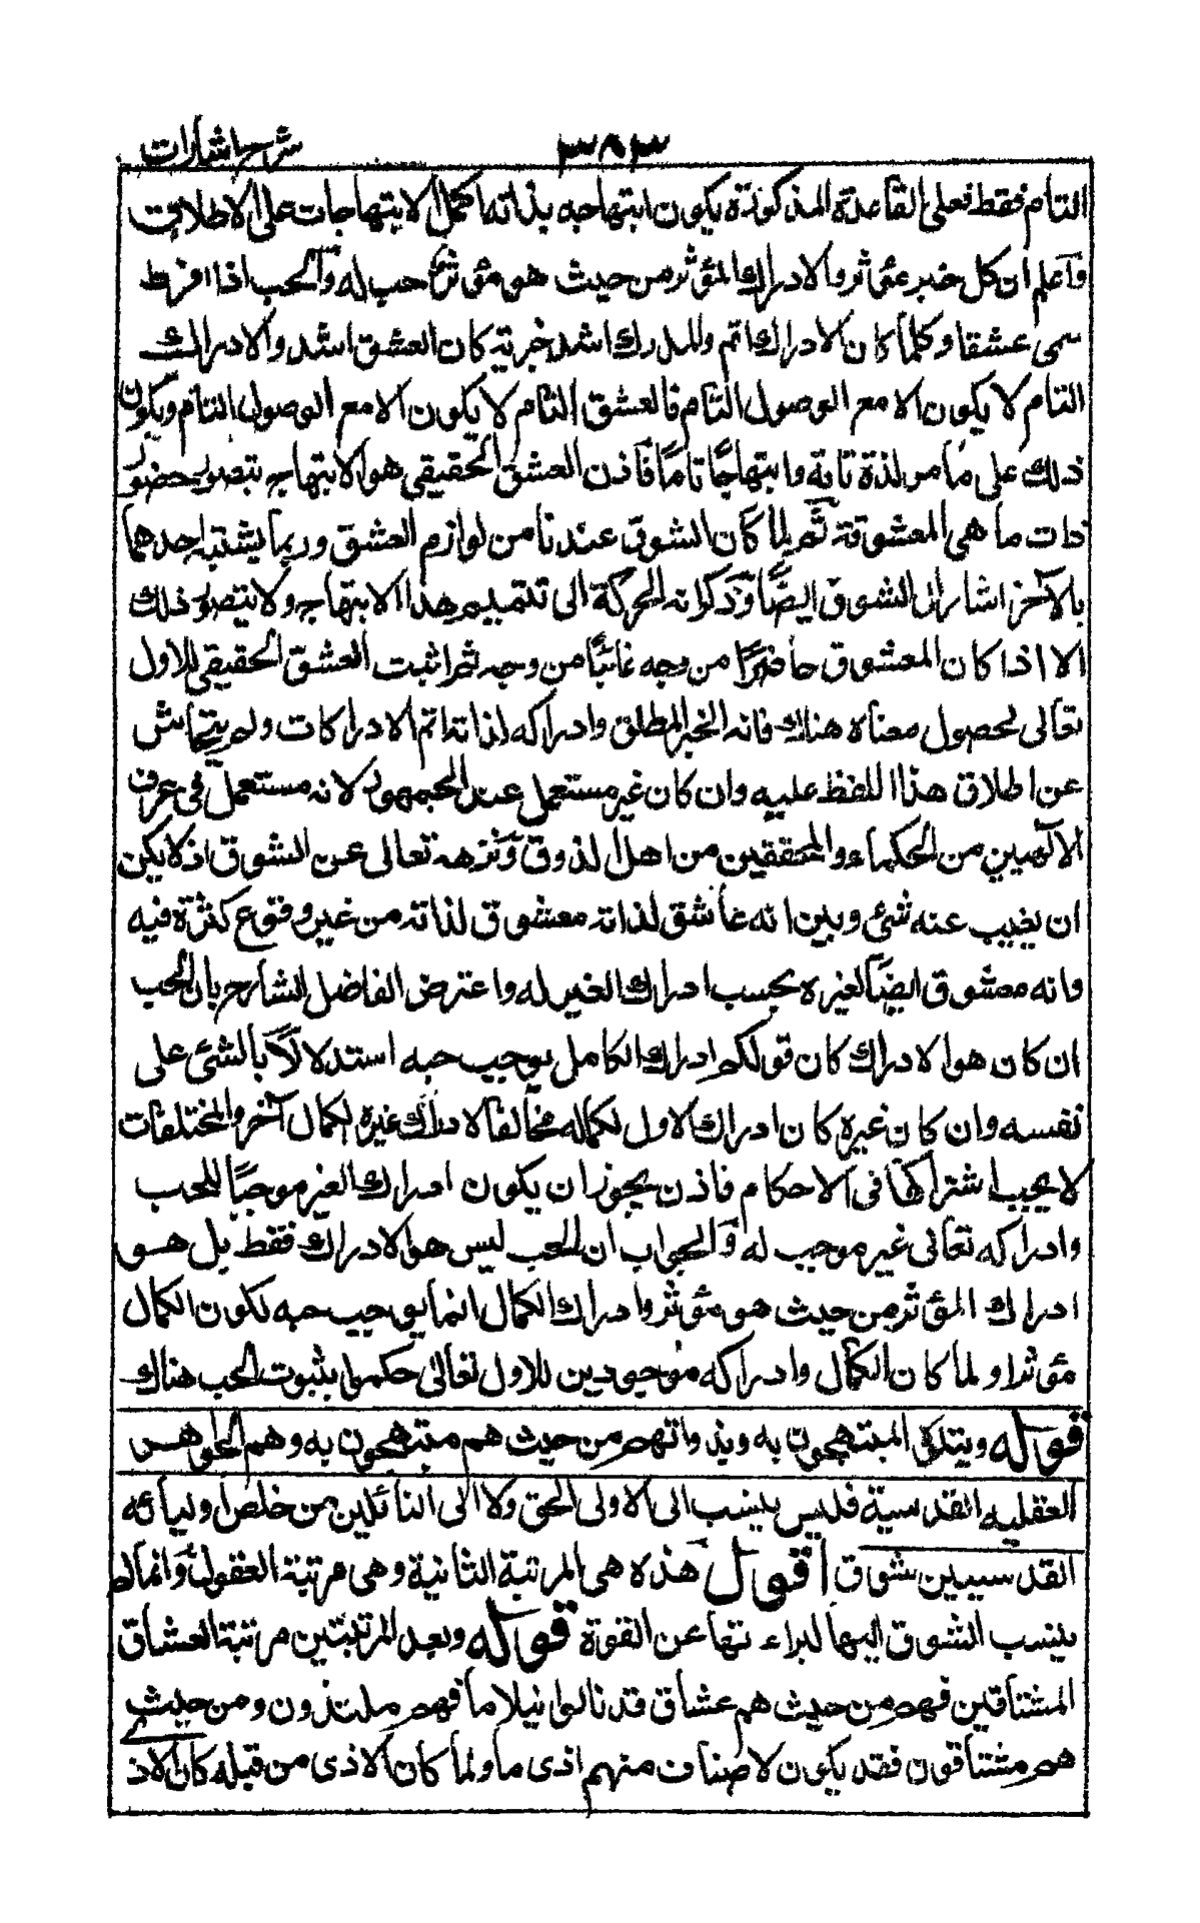 ٣٨٣ شرح اشارات
التام فقط فعلى القاعدة المذكورة يكون ابتهاجه بذاته اكمل الابتهاجات على الاطلاق
واعلم ان كل خير مؤثر والادراك المؤثر من حيث هو مؤثر حب له والحب اذا افرط
سمى عشقا وكلما كان الادراك اتم والمدرك اشد خيرية كان العشق اشد والادراك
التام لا يكون الا مع الوصول التام فالعشق التام لا يكون الا مع الوصول التام ويكون
ذلك على ما مر لذة تامة وابتهاجًا تامًا فاذن العشق الحقيقى هو الابتهاج بتصور حضور
ذات ما هى المعشوقة ثم لما كان الشوق عندنا من لوازم العشق وربما يشتبه احدهما
بالآخر اشار الى الشوق ايضًا وذكر انه الحركة الى تتميم هذا الابتهاج ولا يتصور ذلك
الا اذا كان المعشوق حاضرًا من وجه غائبًا من وجه ثم اثبت العشق الحقيقى للاول
تعالى لحصول معناه هناك فانه الخير المطلق وادراكه لذاته اتم الادراكات ولم يتحاش
عن اطلاق هذا اللفظ عليه وان كان غير مستعمل عند الجمهور لانه مستعمل فى عرف
الآلهيين من الحكماء والمحققين من اهل الذوق ونزهه تعالى عن الشوق اذ لا يمكن
ان يغيب عنه شئ وبين انه عاشق لذاته معشوق لذاته من غير وقوع كثرة فيه
وانه معشوق ايضًا لغيره بحسب ادراك الغير له واعترض الفاضل الشارح بان الحب
ان كان هو الادراك كان قولكم ادراك الكامل يوجب حبه استدلالًا بالشئ على
نفسه وان كان غيره كان ادراك الاول لكماله مخالفا لادراك غيره لكمال آخر والمختلفات
لا يجب اشتراكها فى الاحكام فاذن يجوز ان يكون ادراك الغير موجبًا للحب
وادراكه تعالى غير موجب له والجواب ان الحب ليس هو الادراك فقط بل هو
ادراك المؤثر من حيث هو مؤثر وادراك الكمال انما يوجب حبه لكون الكمال
مؤثرا ولما كان الكمال وادراكه موجودين للاول تعالى حكموا بثبوت الحب هناك
قوله ويتلوه المبتهجون به وبذواتهم من حيث هم مبتهجون به وهم الجواهر
العقلية القدسية فليس ينسب الى الاول الحق ولا الى التائلين من خلص اوليائه
القدسيين شوق اقول هذه هى المرتبة الثانية وهى مرتبة العقول وانما لم
ينسب الشوق اليها لبراءتها عن القوة قوله وبعد المرتبتين مرتبة العشاق
المشتاقين فهم من حيث هم عشاق قد نالوا نيلا ما فهم ملتذون ومن حيث
هم مشتاقون فقد يكون لاصناف منهم اذى ما ولما كان الاذى من قبله كان الاذ